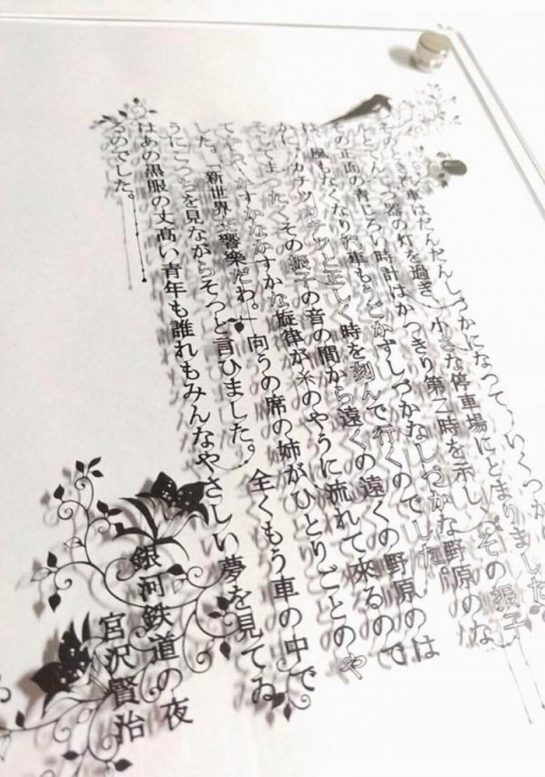 そのとき汽車はだんだんしづかになって、いくつか
てんてつ器の灯を過ぎ、小さな停車場にとまりました。
その正面の青じろい時計はかっきり第二時を示し、その振子
は風もなくなり汽車もうごかずしづかなしづかな野原のな
かにカチッカチッと正しく時を刻んで行くのでした。
そしてまったくその振子の音の間から遠くの遠くの野原のは
てから、かすかなかすかな旋律が糸のやうに流れて来るので
した。「新世界交響楽だわ。」向うの席の姉がひとりごとのや
うにこっちを見ながらそっと言ひました。全くもう車の中で
はあの黒服の丈高い青年も誰れもみんなやさしい夢を見てゐ
るのでした。
銀河鉄道の夜
宮沢賢治